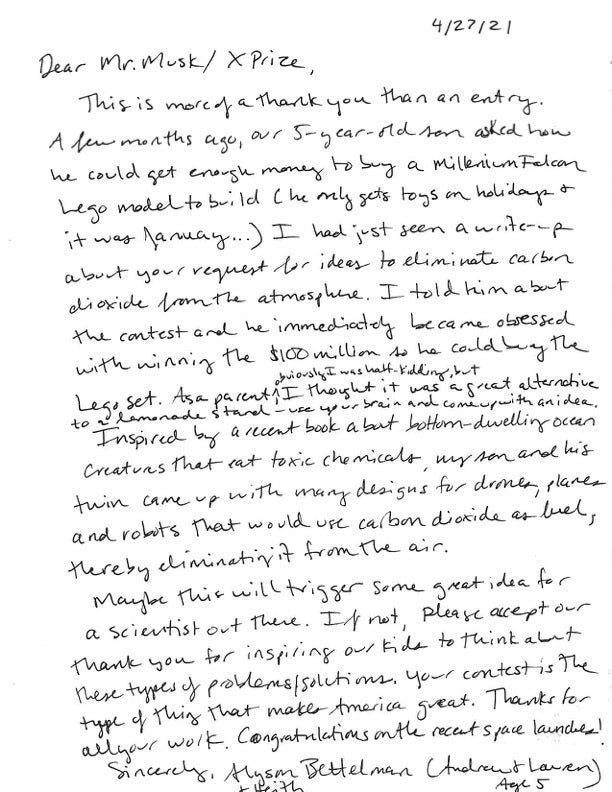 4/27/21
Dear Mr. Musk/ XPrize,
This is more of a thank you than an entry.
A few months ago, our 5-year-old son asked how
he could get enough money to buy a Millenium Falcon
Lego model to build (he only gets toys on holidays &
it was January...) I had just seen a write-up
about your request for ideas to eliminate carbon
dioxide from the atmosphere. I told him about
the contest and he immediately became obsessed
with winning the $100 million so he could buy the
obviously I was half-kidding, but
Lego set. As a parent, ^ I thought it was a great alternative
to a lemonade stand - use your brain and come up with an idea.
Inspired by a recent book about bottom-dwelling ocean
creatures that eat toxic chemicals, my son and his
twin came up with many designs for drones, planes
and robots that would use carbon dioxide as fuel,
thereby eliminating it from the air.
Maybe this will trigger some great idea for
a scientist out there. If not, please accept our
thank you for inspiring our kids to think about
these types of problems/solutions. Your contest is the
type of thing that makes America great. Thanks for
all your work. Congratulations on the recent space launches!
Sincerely, Alyson Bettelman (Andrew & Lauren)
+ Keith Age 5